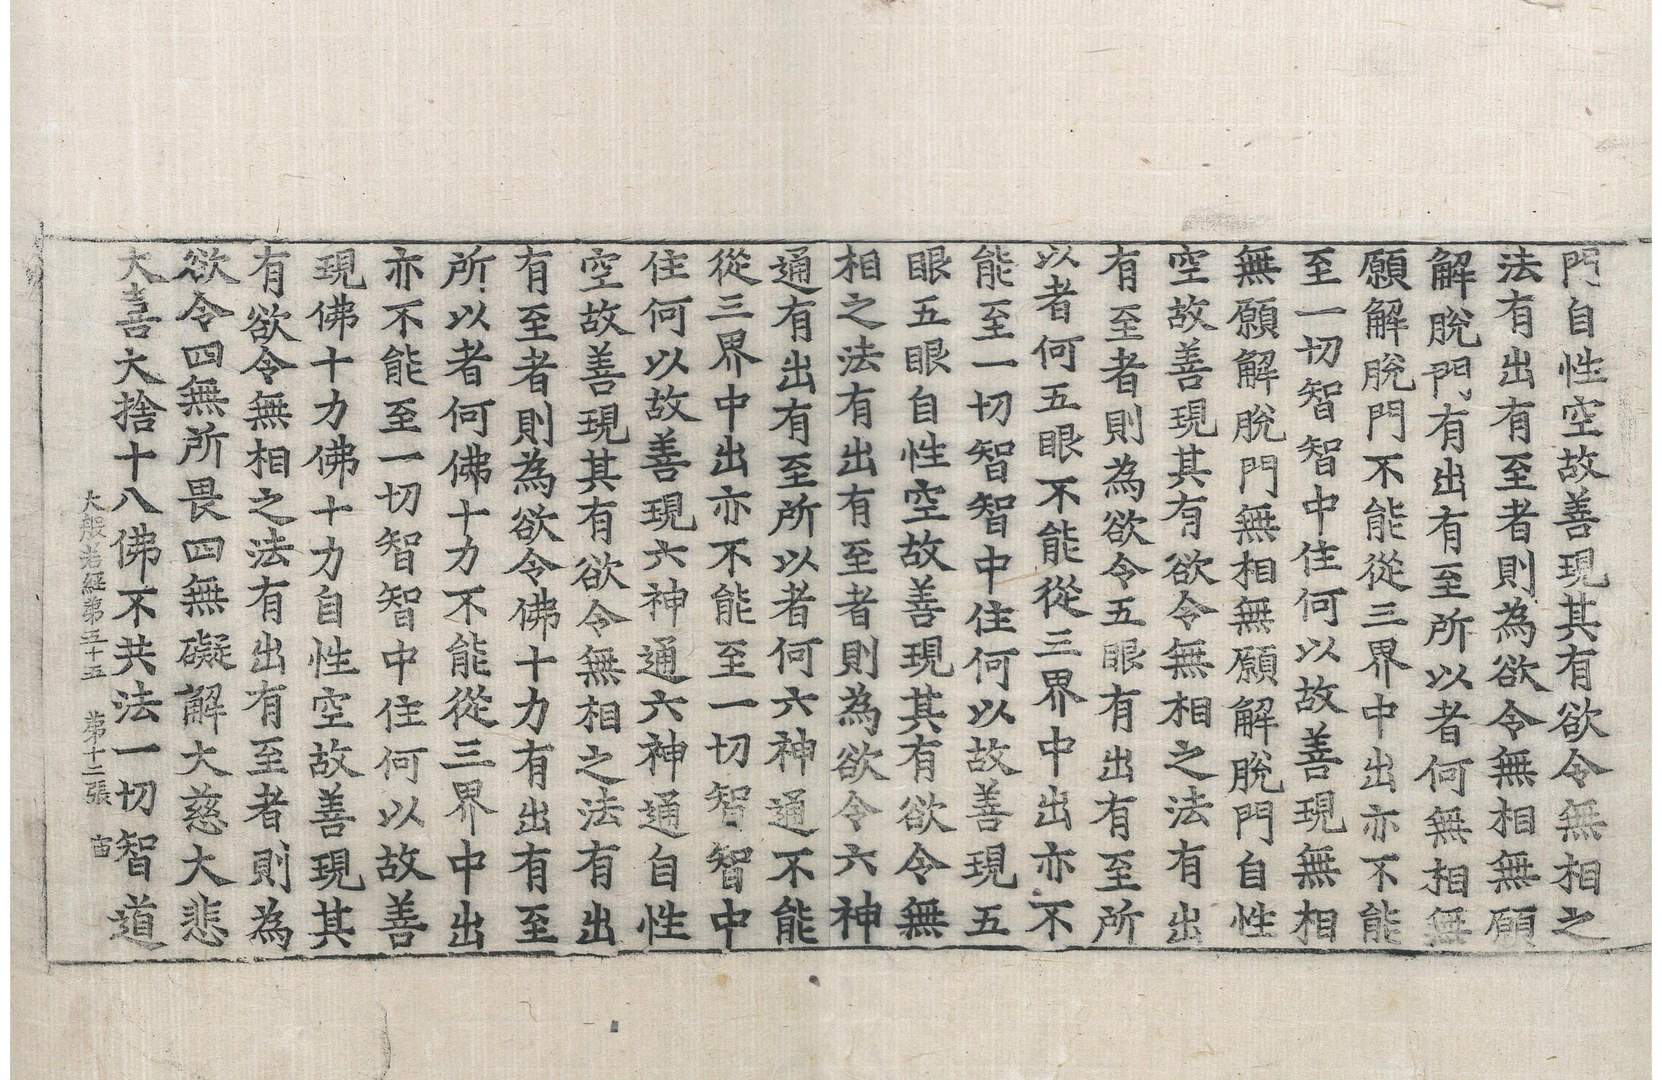 門自性空故善現其有欲令無相之
法有出有至者則為欲令無相無願
解脫門有出有至所以者何無相無
願解脫門不能從三界中出亦不能
至一切智智中住何以故善現無相
無願解脫門無相無願解脫門自性
空故善現其有欲令無相之法有出
有至者則為欲令五眼有出有至所
以者何五眼不能從三界中出亦不
能至一切智智中住何以故善現五
眼五眼自性空故善現其有欲令無
相之法有出有至者則為欲令六神
通有出有至所以者何六神通不能
從三界中出亦不能至一切智智中
住何以故善現六神通六神通自性
空故善現其有欲令無相之法有出
有至者則為欲令佛十力有出有至
所以者何佛十力不能從三界中出
亦不能至一切智智中住何以故善
現佛十力佛十力自性空故善現其
有欲令無相之法有出有至者則為
欲令四無所畏四無礙解大慈大悲
大喜大捨十八佛不共法一切智道
大般若經第五十五 第十二張